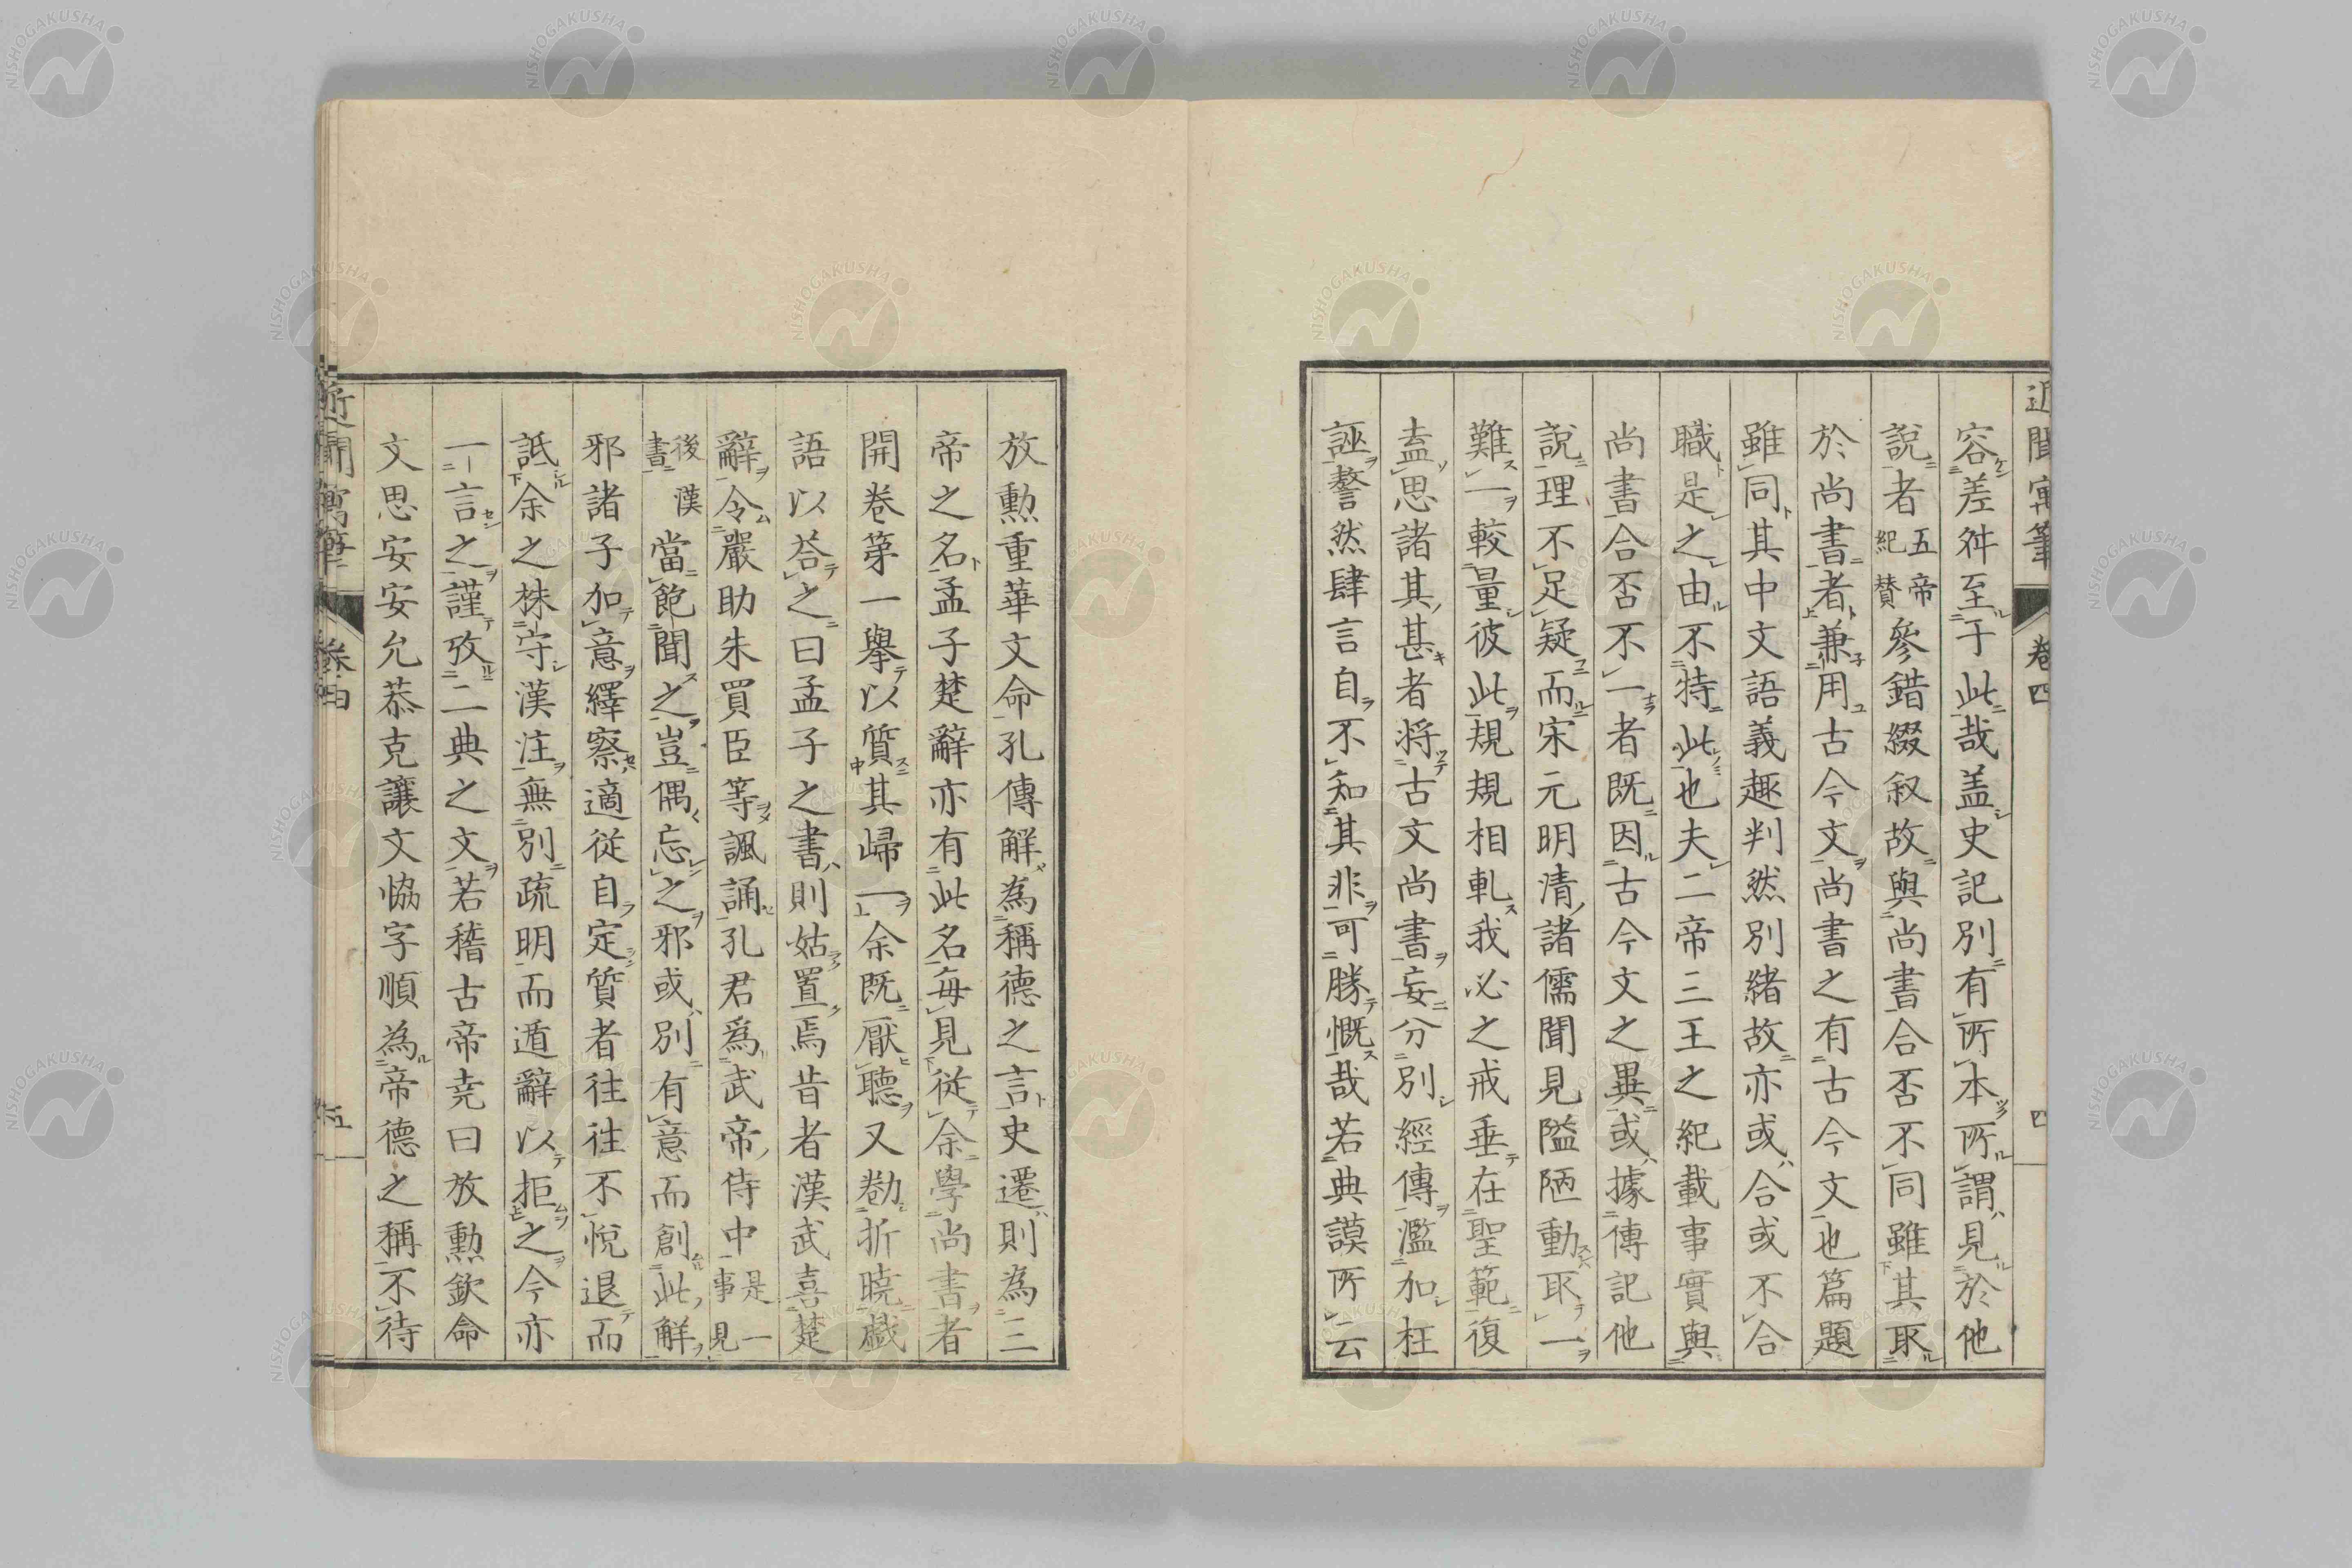 近聞寓筆 卷四 四
容差舛至于此哉盖史記別有所本所謂見於他
說者五帝紀贊參錯綴叙故與尚書合否不同雖其取
於尚書者兼用古今文尚書之有古今文也篇題
雖同其中文語義趣判然別緒故亦或合或不合
職是之由不特此也夫二帝三王之紀載事實與
尚書合否不一者既因古今文之異或據傳記他
說理不足疑而宋元明清諸儒聞見隘陋動取一
難一較量彼此規規相軋我必之戒垂在聖範復
盍思諸其甚者将古文尚書妄分別經傳濫加枉
誣謷然肆言自不知其非可勝慨哉若典謨所云
放勲重華文命孔傳解為稱德之言史遷則為三
帝之名孟子楚辭亦有此名毎見從余學尚書者
開卷第一舉以質其歸一余既厭聽又勸折曉戱
語以荅之曰孟子之書則姑置焉昔者漢武喜楚
辭令嚴助朱買臣等諷誦孔君爲武帝侍中是一事見
後漢書當飽聞之豈偶忘之邪或別有意而創此解
邪諸子加意繹察適從自定質者往往不悅退而
詆余之株守漢注無別疏明而遁辭以拒之今亦
一言之謹攷二典之文若稽古帝尭曰放勲欽命
文思安安允恭克讓文恊字順為帝德之稱不待
近聞寓筆 卷四 五
NISHOGAKUSHA